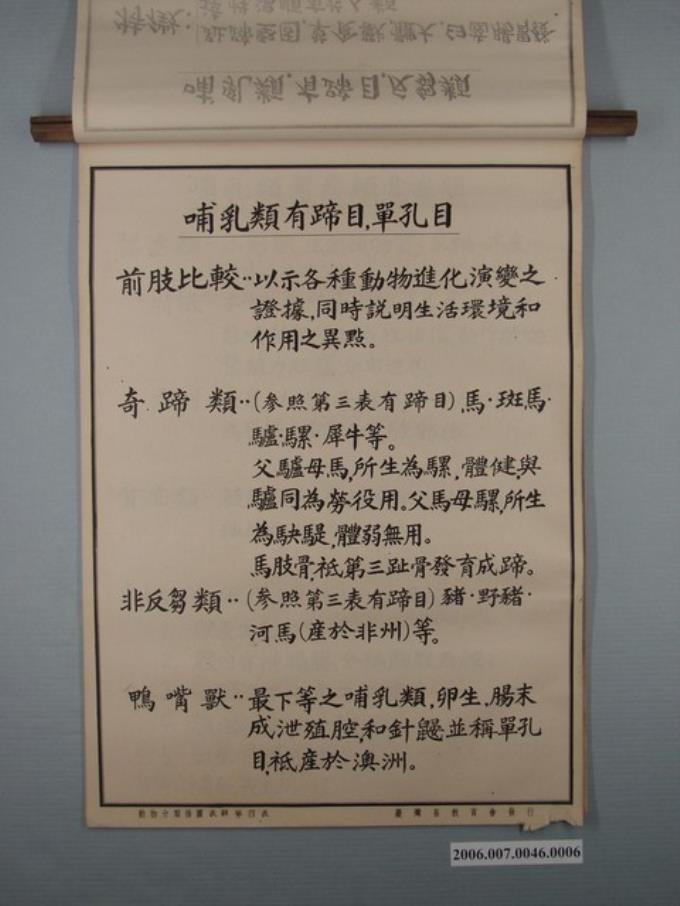 哺乳類,有蹄目,反芻類
哺乳類有蹄目,單孔目
前肢比較‥以示各種動物進化演變之
證據,同時説明生活環境和
作用之異點。
奇蹄類‥(參照第三表有蹄目)馬·斑馬·
驢·騾·犀牛等。
父驢母馬,所生為騾,體健,與
驢同為勞役用。父馬母騾,所生
為駃騠,體弱無用。
馬肢骨,祗第三趾骨發育成蹄。
非反芻類‥(參照第三表有蹄目)豬·野豬·
河馬(產於非州)等。
鴨嘴獸‥最下等之哺乳類,卵生,腸末
成泄殖腔,和針鼴並稱單孔
目,祗產於澳洲。
臺灣省教育會發行
2006.007.0046.0006